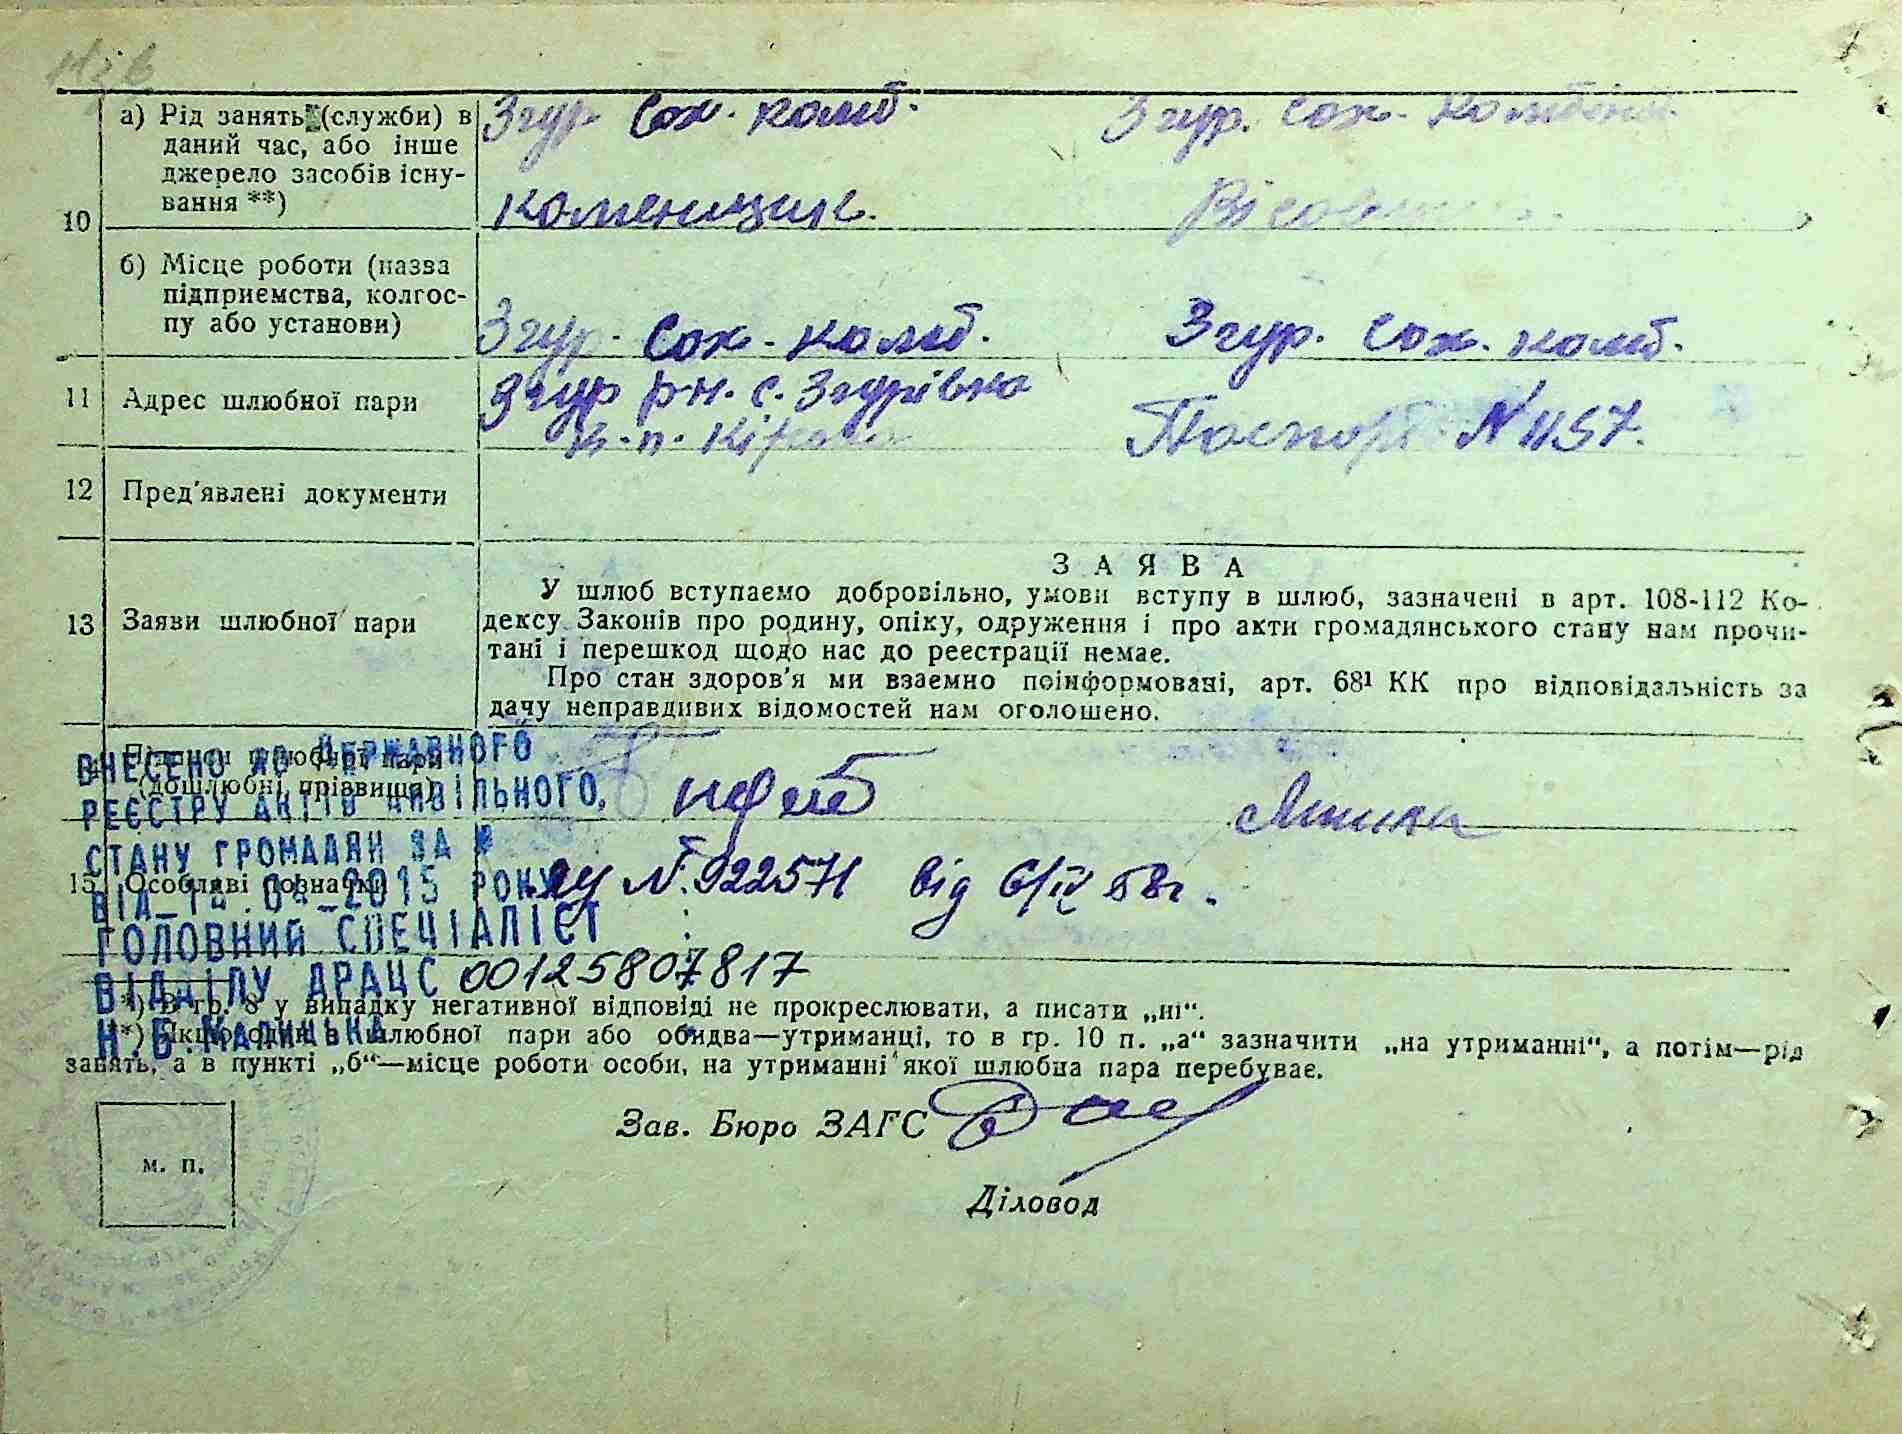 а) Рід занять (служби) в
даний час, або інше
джерело засобів існу-
вання **)
Згур. Сах. комб.
Згур. Сах. Комбінат
10
каменщик.
б) Місце роботи (назва
підприємства, колгос-
пу або установи)
Згур. Сах. комб.
Згур. Сах. комб.
11
Адрес шлюбної пари
Згур р-н. с. Згурівка
Паспорт N 1157.
12
Пред'явлені документи
ЗАЯВА
13
Заяви шлюбної пари
У шлюб вступаємо добровільно, умови вступу в шлюб, зазначені в арт. 108-112 Ко-
дексу Законів про родину, опіку, одруження і про акти громадянського стану нам прочи-
тані і перешкод щодо нас до реєстрації немає.
Про стан здоров'я ми взаємно поінформовані, арт. 68¹ КК про відповідальність за
дачу неправдивих відомостей нам оголошено.
Підписи шлюбної пари
(дошлюбні прізвища)
15
Особливі позначки
N. 922571 від 6/IV 58 г.
ВНЕСЕНО ДО ДЕРЖАВНОГО
РЕЄСТРУ АКТІВ ЦИВІЛЬНОГО
СТАНУ ГРОМАДЯН ЗА №
ВІД 2015 РОКУ
ГОЛОВНИЙ СПЕЦІАЛІСТ
ВІДДІЛУ ДРАЦС
00125807817
*) В гр. 8 у випадку негативної відповіді не прокреслювати, а писати „ні“.
**) Якщо один з шлюбної пари або обидва—утриманці, то в гр. 10 п. „а“ зазначити „на утриманні“, а потім—рід
занять, а в пункті „б“—місце роботи особи, на утриманні якої шлюбна пара перебуває.
Зав. Бюро ЗАГС
м. п.
Діловод